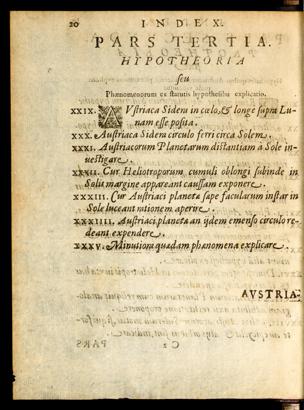 20 INDEX.
PARS TERTIA.
HYPOTHEORIA
seu
Phænomenorum ex statutis hypothesibus explicatio.
XXIX. AVstriaca Sidera in cœlo, & longè supra Lu-
nam esse posita.
XXX. Austriaca Sidera circulo ferri circa Solem.
XXXI. Austriacorum Planetarum distantiam à Sole in-
vestigare.
XXXII. Cur Heliotroporum cumuli oblongi subinde in
Solis margine appareant caussam exponere.
XXXIII. Cur Austriaci planetæ sæpe facularum instar in
Sole luceant rationem aperire.
XXXIIII. Austriaci planetæ an ijdem emenso circulo re-
deant expendere.
XXXV. Minutiora quædam phænomena explicare.
AVSTRIA-